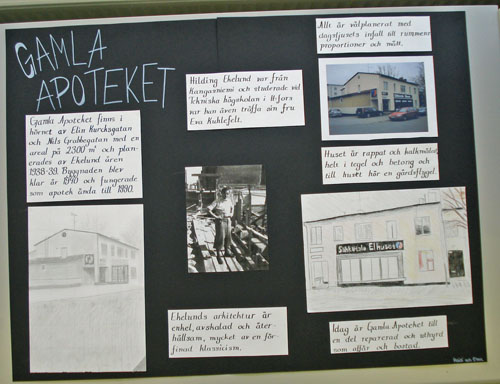 GAMLA
APOTEKET
Gamla Apoteket finns i
hörnet av Elin Kurcksgatan
och Nils Grabbegatan med en
areal på 2300 m² och plan-
erades av Ekelund åren
1938-39. Byggnaden blev
klar år 1940 och fungerade
som apotek ända till 1990.
Hilding Ekelund var från
Kangasniemi och studerade vid
Tekniska högskolan i H:fors
var han även träffa sin fru
Eva Kuhlefelt.
Ekelunds arkitektur är
enkel, avskalad och åter-
hållsam, mycket av en för-
finad klassicism.
Allt är välplanerat med
dagsljusets infall till rummens
proportioner och mått.
Huset är rappat och kalkmålat,
helt i tegel och betong och
till huset hör en gårdsflygel.
Sähkötalo Elhuset
Idag är Gamla Apoteket till
en del reparerad och uthyrd
som affär och bostad.